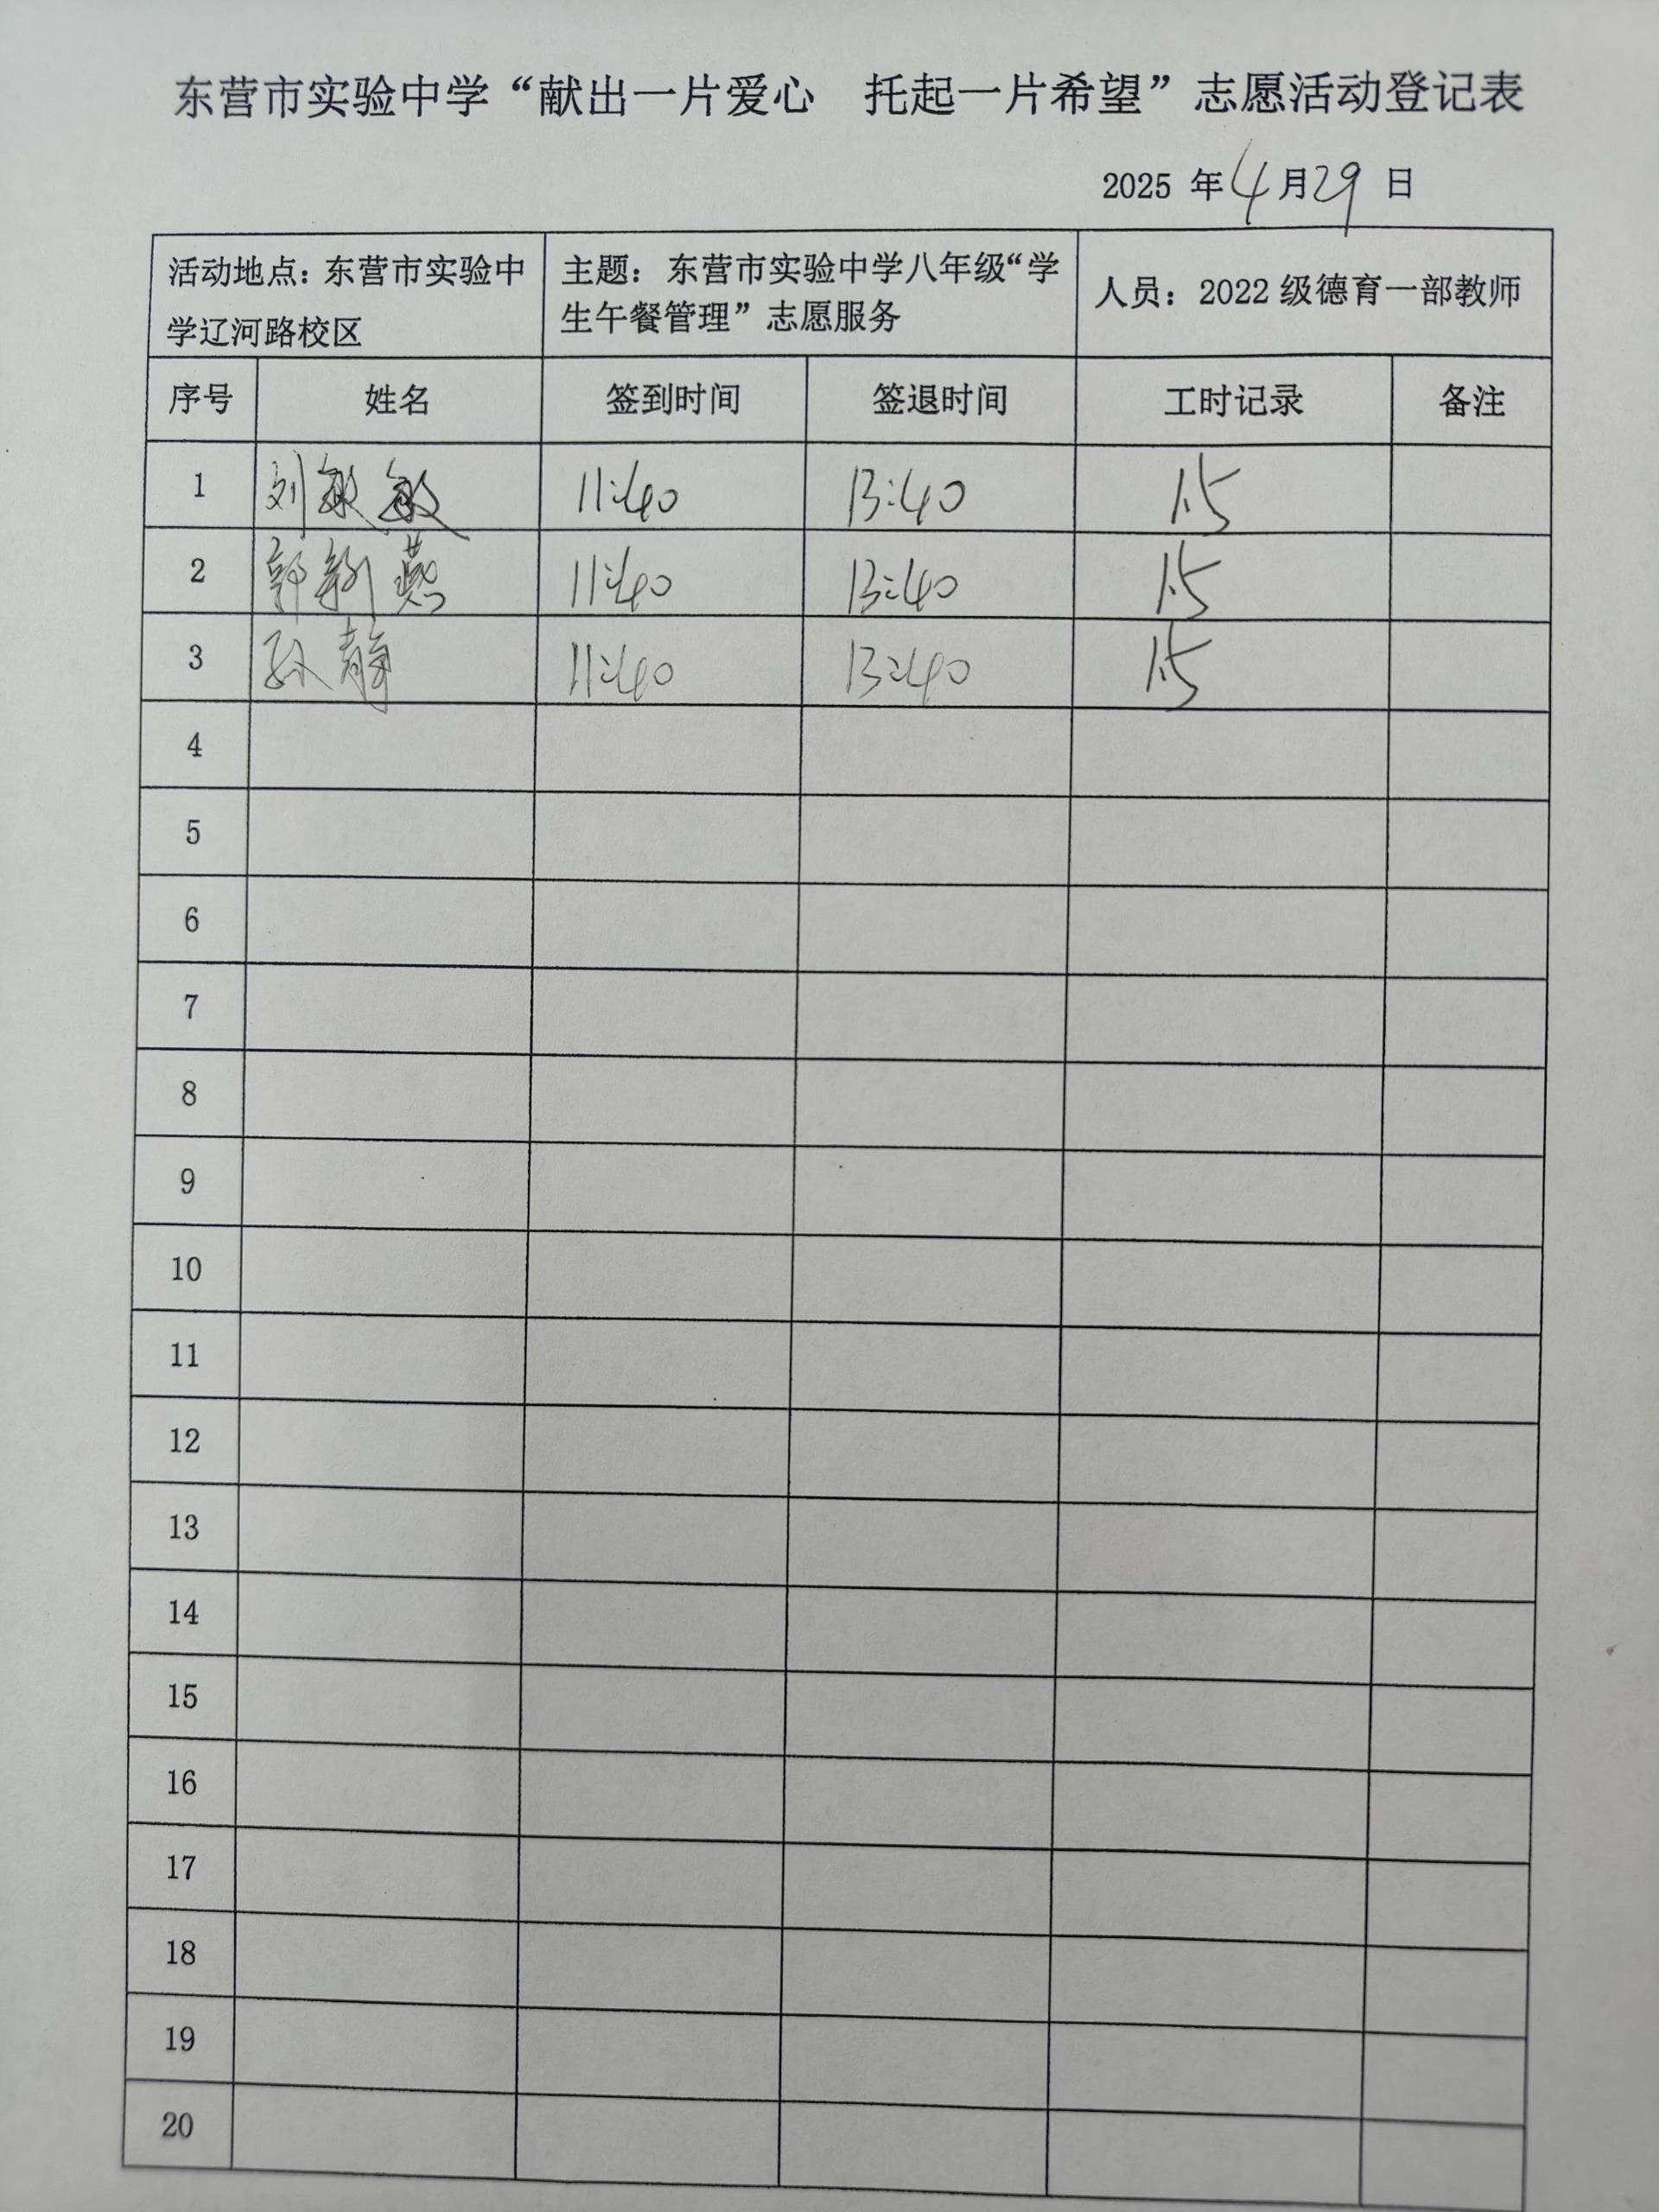 东营市实验中学“献出一片爱心 托起一片希望”志愿活动登记表
2025 年 4 月 29 日
活动地点：东营市实验中
学辽河路校区
主题：东营市实验中学八年级“学
生午餐管理”志愿服务
人员：2022 级德育一部教师
序号 姓名 签到时间 签退时间 工时记录 备注
1 刘敏敏 11:40 13:40 1.5
2 郭 燕 11:40 13:40 1.5
3 孙静 11:40 13:40 1.5
4
5
6
7
8
9
10
11
12
13
14
15
16
17
18
19
20